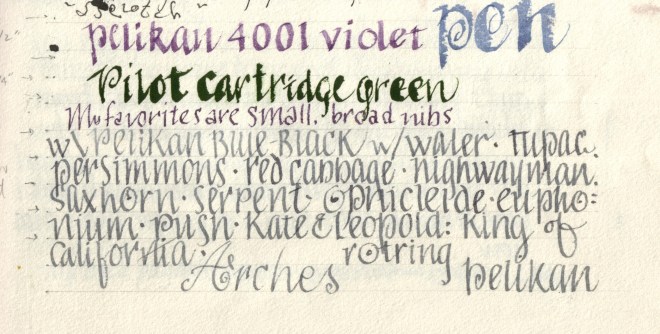 pelikan 4001 violet pen
Pilot cartridge green
My favorites are small. broad nibs
w\ Pelikan Blue-Black w/water · tupac.
persimmons · red cabbage · highwayman.
saxhorn · serpent · ophicleide · eupho=
nium · push · Kate & Leopold: King of
california ·
Arches rotring pelikan